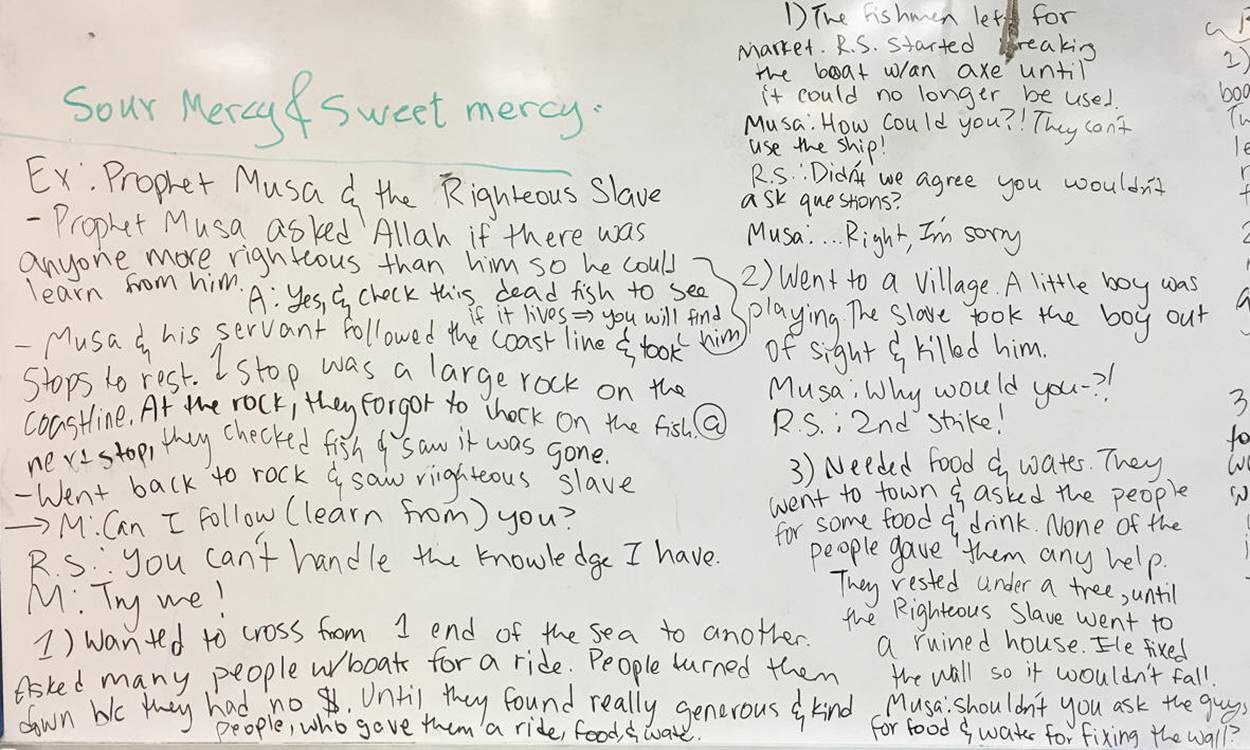 Sour Mercy & Sweet mercy.
Ex: Prophet Musa & the Righteous Slave
- Prophet Musa asked Allah if there was
anyone more righteous than him so he could
learn from him.
A: Yes, & check this dead fish to see
if it lives => you will find
him
- Musa & his servant followed the coast line & took
stops to rest. 1 stop was a large rock on the
coastline. At the rock, they forgot to check on the fish. @
next stop, they checked fish & saw it was gone.
- Went back to rock & saw riighteous slave
→ M: Can I follow (learn from) you?
R.S.: You can't handle the knowledge I have.
M: Try me!
1) Wanted to cross from 1 end of the sea to another.
Asked many people w/boats for a ride. People turned them
down b/c they had no $. Until they found really generous & kind
people, who gave them a ride, food, & wate.
1) The fishmen left for
market. R.S. started breaking
the boat w/an axe until
it could no longer be used.
Musa: How could you?! They can't
use the ship!
R.S.: Didn't we agree you wouldn't
ask questions?
Musa: ...Right, I'm sorry
2) Went to a village. A little boy was
playing. The slave took the boy out
of sight & killed him.
Musa: Why would you-?!
R.S.: 2nd strike!
3) Needed food & water. They
went to town & asked the people
for some food & drink. None of the
people gave them any help.
They rested under a tree, until
the Righteous Slave went to
a ruined house. He fixed
the wall so it wouldn't fall.
Musa: shouldn't you ask the guys
for food & water for fixing the wall?